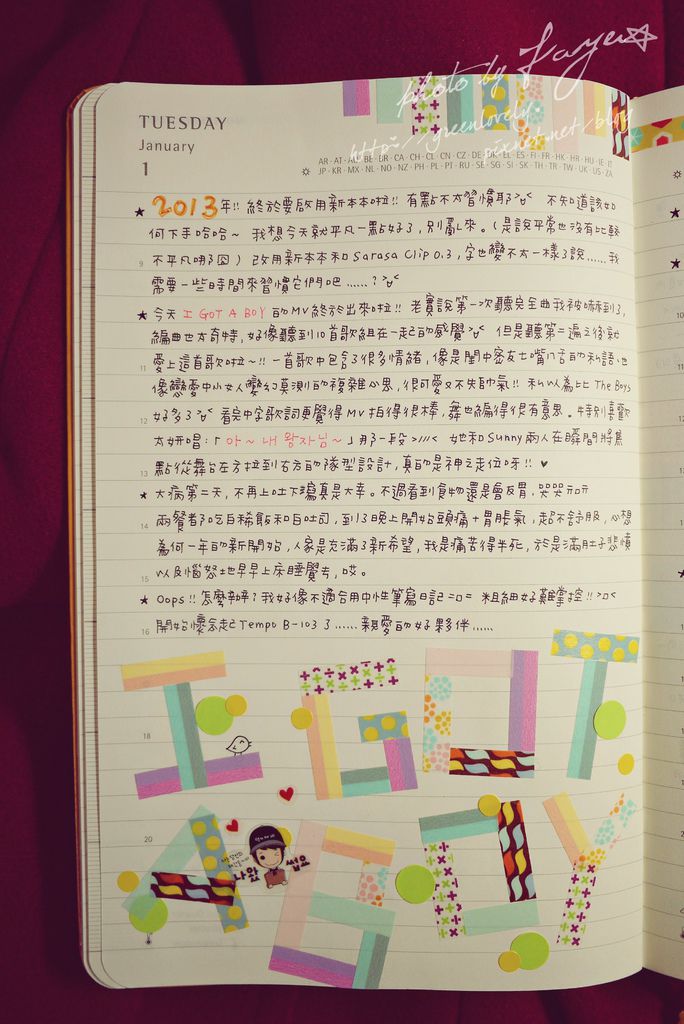 photo by Faye☆
http://greenlovely.
pixnet.net/blog
TUESDAY
January
1
AR·AT·AU·BE·BR·CA·CH·CL·CN·CZ·DE·DK·EE·ES·FI·FR·HK·HR·HU·IE·IT
JP·KR·MX·NL·NO·NZ·PH·PL·PT·RU·SE·SG·SI·SK·TH·TR·TW·UK·US·ZA
★ 2013年!! 終於要啟用新本本啦!! 有點不太習慣耶>"< 不知道該如
何下手哈哈~ 我想今天就平凡一點好了,別亂來。(是說平常也沒有比較
9 不平凡哪囧) 改用新本本和Sarasa Clip 0.3,字也變不太一樣了說……我
需要一些時間來習慣它們吧……?>"<
★ 今天 I GOT A BOY 的MV終於出來啦!! 老實說第一次聽完全曲我被嚇到了,
編曲也太奇特,好像聽到10首歌組在一起的感覺>"< 但是聽第二遍之後就
11 愛上這首歌啦~!! 一首歌中包含了很多情緒,像是閨中密友七嘴八舌的私語、也
像戀愛中小女人變幻莫測的複雜心思,很可愛又不失帥氣!! 私以為比 The Boys
12 好多了>"< 看完中字歌詞更覺得MV拍得很棒,舞也編得很有意思。特別喜歡
太妍唱:「아~ 내 왕자님~」那一段>///< 她和Sunny兩人在瞬間將焦
13 點從舞台左方拉到右方的隊型設計,真的是神之走位呀!! ♥
★ 大病第二天,不再上吐下瀉真是大幸。不過看到食物還是會反胃,哭哭
14 兩餐都吃白稀飯和白吐司,到了晚上開始頭痛+胃脹氣,超不舒服,心想
為何一年的新開始,人家是充滿了新希望,我是痛苦得半死,於是滿肚子悲憤
15 以及惱怒地早早上床睡覺去,哎。
★ Oops!! 怎麼辦?我好像不適合用中性筆寫日記=口= 粗細好難掌控!!>口<
16 開始懷念起Tempo B-103了……親愛的好夥伴……
I GOT
18
A BOY
20
나왔
썹요